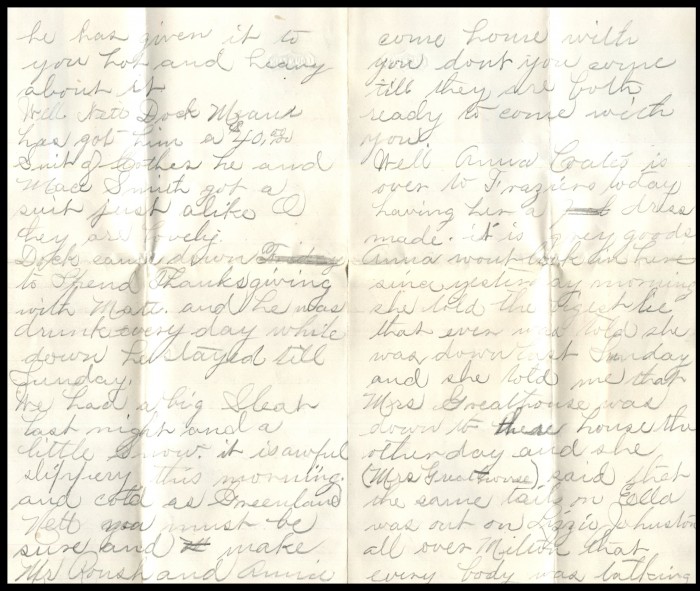 he has given it to
you hot and heavy
about it
Well Nett Dock Means
has got him a $40.00
Suit of Clothes he and
Mace Smith got a
suit just alike O
hey are lovely.
Dock came down Friday
to Spend Thanksgiving
with Matt. and he was
drunk every day while
down he stayed till
Sunday.
We had a big Sleat
last night and a
little snow. it is awful
slippery this morning.
and cold as Greenland
Nett you must be
sure and make
Mr Roush and Annie
come home with
you dont you come
till they are both
ready to come with
you
Well Anna Coats is
over to Fraziers today
having her a dress
made. it is grey goods
Anna wont look in here
since yesterday morning
she told the bigest lie
that ever was told she
was down last Sunday
and she told me that
Mrs Greathouse was
down to there house the
other day and she
(Mrs Greathouse) said that
the same tail on Ella
was out on Lizzie Johnston
all over Milton that
every body was talking